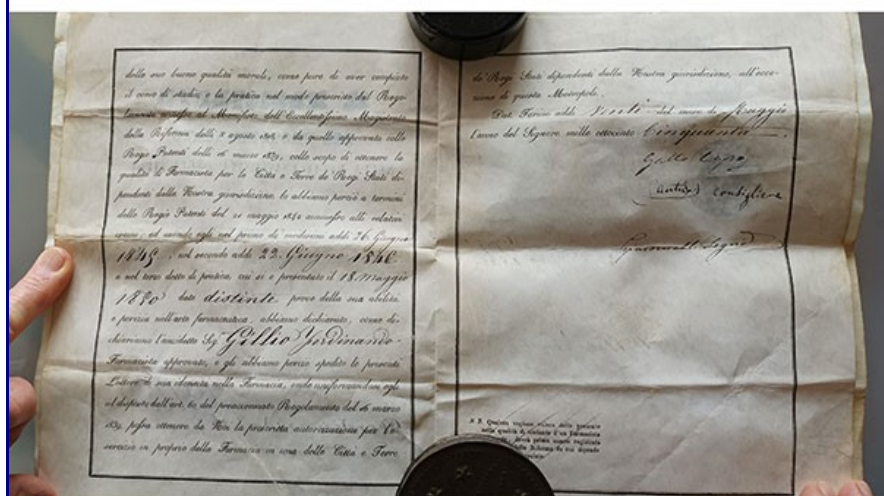 della sue buone qualità morali, come pure di aver compiuto
il corso di studio, e la pratica nel modo prescritto dal Rego-
lamento annesso al Manifesto dell'Eccellentissimo Magistrato
della Riforma delli agosto e da quello approvato colle
Regie Patenti delli 16 marzo 1839, collo scopo di ottenere la
qualità di Farmacista per la Città e Terre de' Regi Stati di-
pendenti dalla Nostra giurisdizione, lo abbiamo perciò a termini
delle Regie Patenti del maggio 1842 ammesso alli relativi
esami, ed avendo egli nel primo di medesimi addì 26. Giugno
nel secondo addì 22. Giugno
e nel terzo detto di pratica, cui si è presentato il 18. Maggio
1850 date distinte prove della sua abilità
e perizia nell'arte farmaceutica, abbiamo dichiarato, come di-
chiariamo l'anzidetto Sig. Gillio Ferdinando
Farmacista approvato, e gli abbiamo perciò spedito le presenti
Lettere di sua idoneità nella Farmacia, onde uniformandosi egli
al disposto dell'art. 60 del preaccennato Regolamento del 16 marzo
1839, possa ottenere da Noi la prescritta autorizzazione per l'e-
sercizio in proprio della Farmacia in una delle Città e Terre
de' Regi Stati dipendenti dalla Nostra giurisdizione, all'ecce-
zione di questa Metropoli.
Dat. Torino addì Venti del mese di Maggio
l'anno del Signore mille ottocento Cinquanta.
Gallo
consigliere
N. B. Qualora
nella qualità di